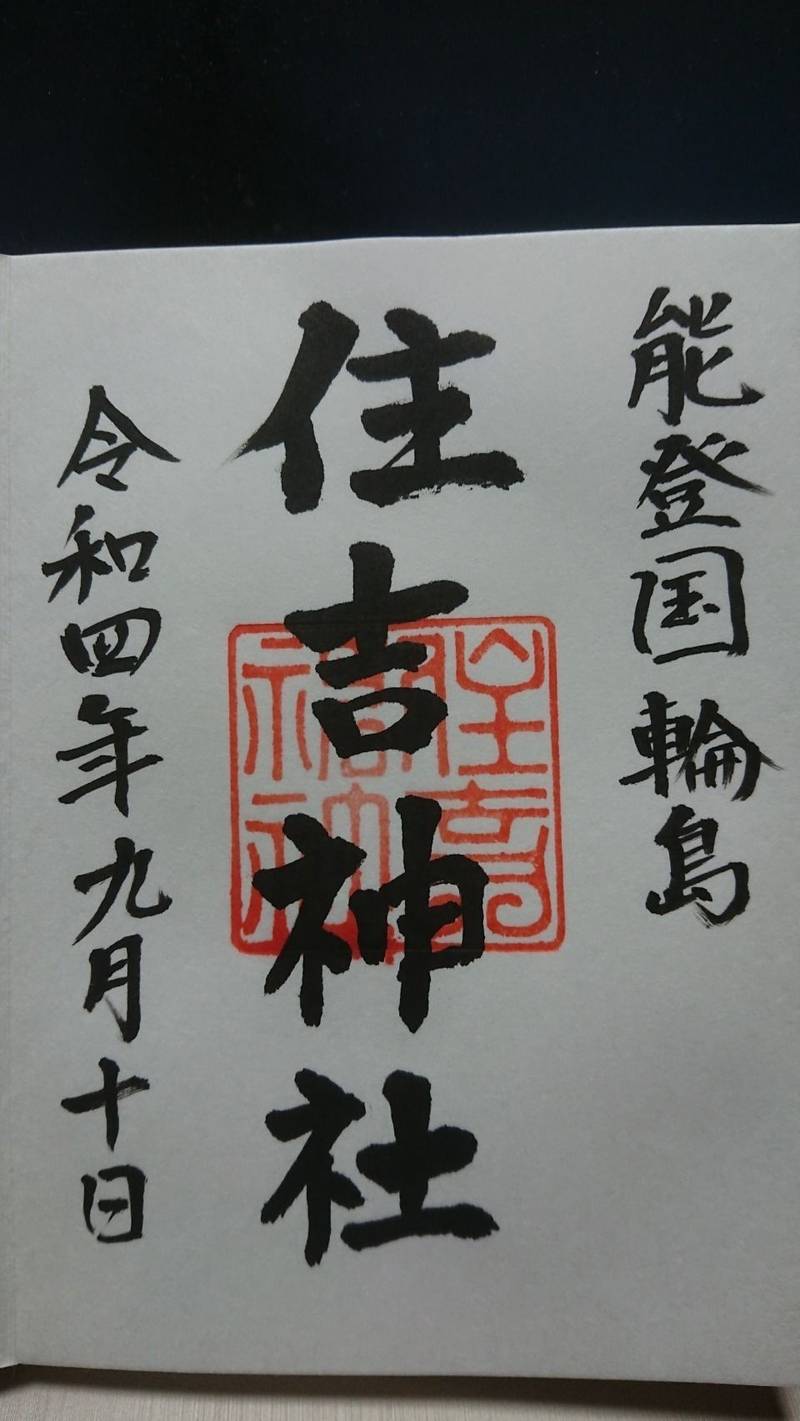 能登国輪島
住吉神社
令和四年九月十日